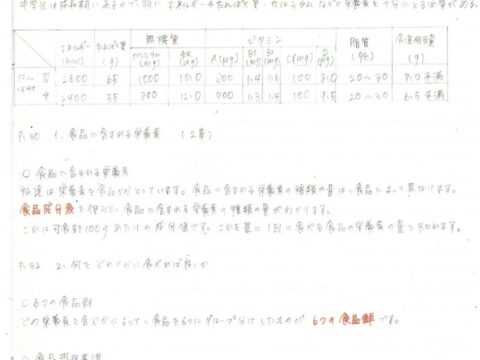 中学生は成長期にあるので、特にエネルギーやたんぱく質、カルシウムなどの栄養素を十分にとる必要がある。
無機質 ビタミン
エネルギー たんぱく質 カルシウム 鉄 A(μg) B1 B2 C(mg) D 脂質 食塩相当量
(kcal) (g) (mg) (mg) (mg) (mg) (μg) (%) (g)
12～ 男 2600 65 1000 10.0 800 1.4 1.6 100 20～30 7.0未満
14才 女 2400 55 800 12.0 700 1.3 1.4 100 20～30 6.5未満
P.80 1. 食品に含まれる栄養素 (2章)
食品に含まれる栄養素
私達は栄養素を食品からとっています。食品に含まれる栄養素の種類や量は、食品によって異なります。
食品成分表を使うと、食品に含まれる栄養素の種類や量がわかります。
これは可食部100gあたりの成分値です。これを基に1回に食べる食品の栄養素の量を求めれます。
P.82 2. 何をどれくらい食べれば良いか
○6つの食品群
どの栄養素を含むかによって、食品を6つにグループ分けしたものが 6つの食品群 です。
○食品摂取基準